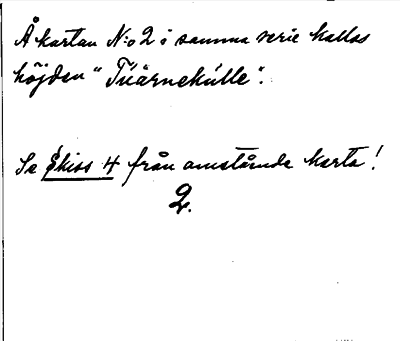 Å kartan N:o 2 i samma serie kallas
höjden "Tüärnekulle".
Se skiss 4 från omstående karta!
2.